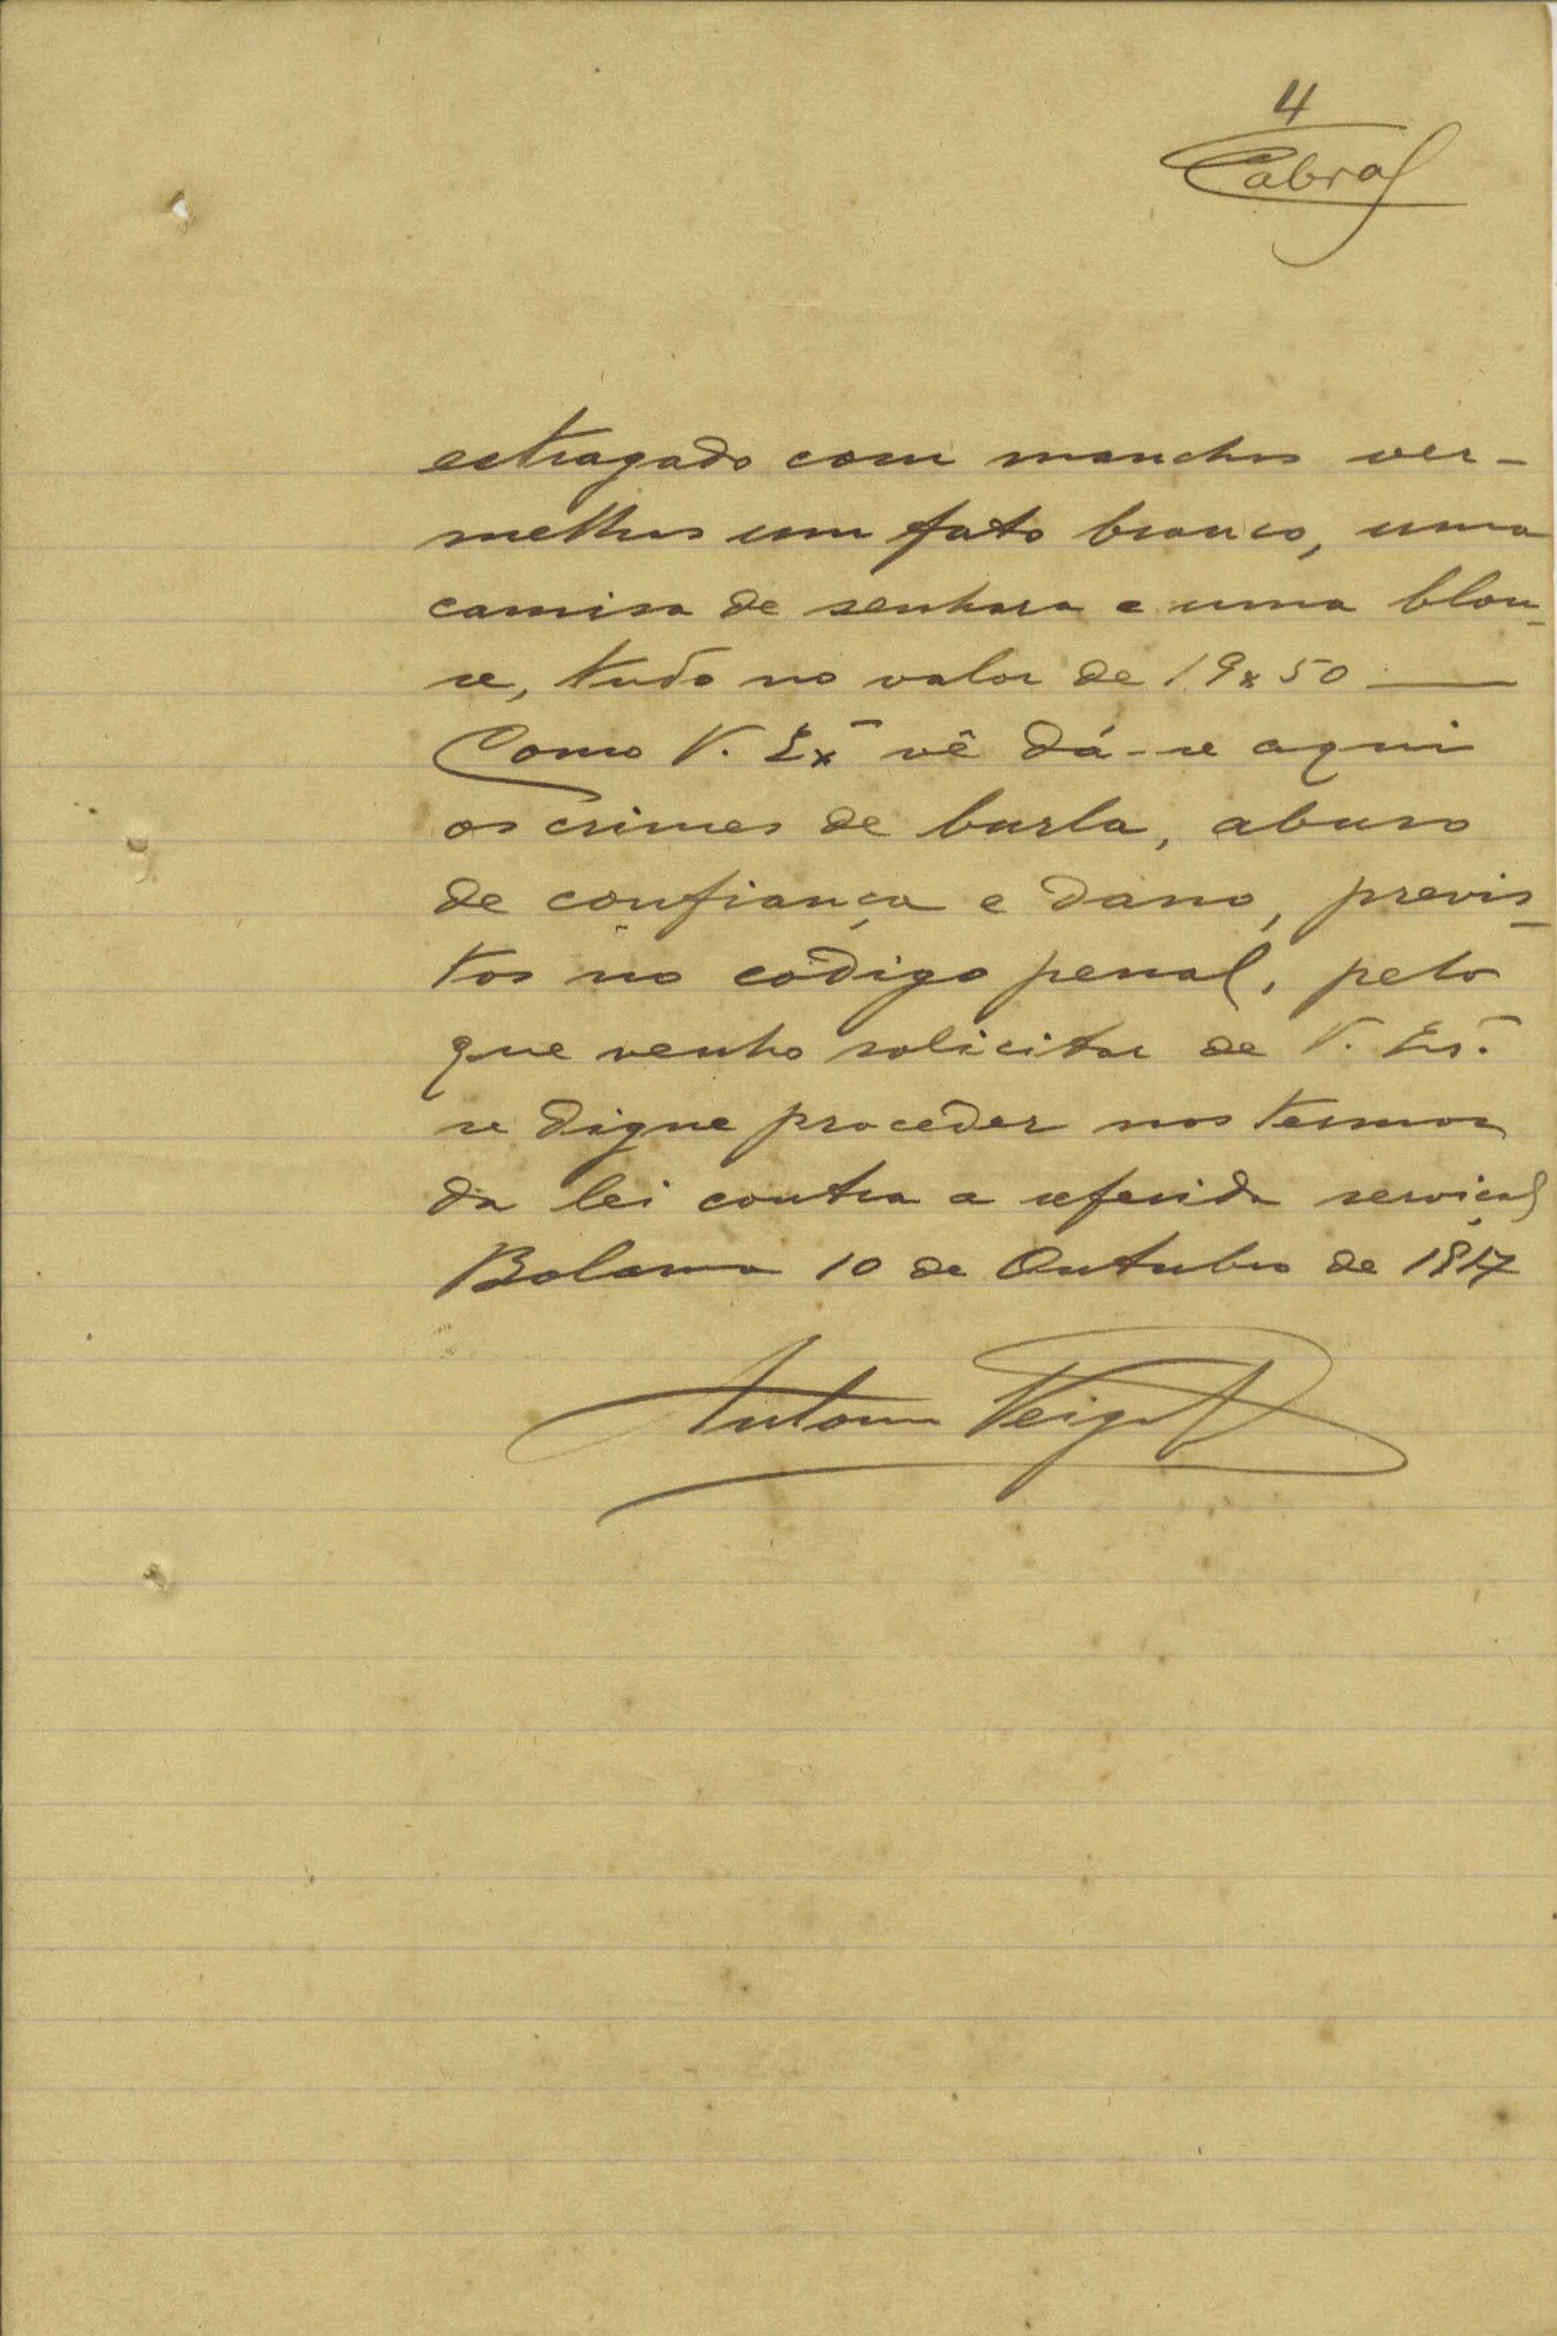 4
Cabral
estragado com manchas ver-
melhas um fato branco, uma
camisa de senhora e uma blou-
se, tudo no valor de 19$50 —
Como V. Exª vê dá-se aqui
os crimes de burla, abuso
de confiança e dano, previs-
tos no codigo penal, pelo
que venho solicitar de V. Exª.
se digne proceder nos termos
da lei contra a referida serviçal
Bolama 10 de Outubro de 1917
Antonio Veiga